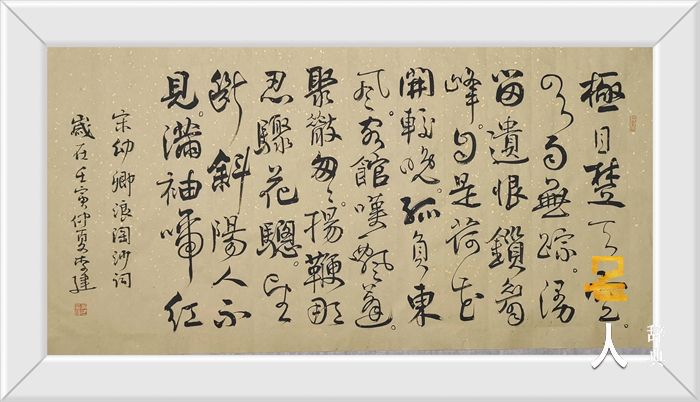 極目楚天空。
云雨無踪。漫
留遺恨鎖眉
峰。自是荷花
開較晚。孤負東
風。客館嘆飄蓬。
聚散匆匆。揚鞭那
忍驟花驄。望
斷斜陽人不
見。滿袖啼紅
宋幼卿浪淘沙詞
歲在壬寅仲夏李建
人
辞典